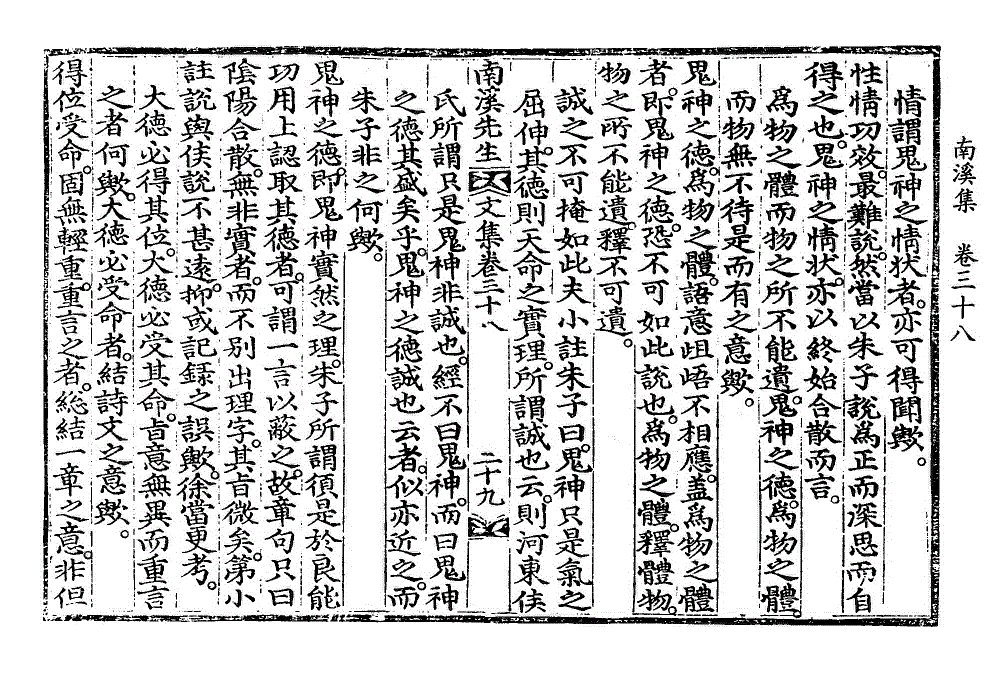 南溪集　卷三十八
情謂鬼神之情狀者。亦可得聞歟。
性情功效。最難說。然當以朱子說爲正而深思而自
得之也。鬼神之情狀。亦以終始合散而言。
爲物之體而物之所不能遺。鬼神之德。爲物之體。
而物無不待是而有之意歟。
鬼神之德。爲物之體。語意岨峿不相應。盖爲物之體
者。卽鬼神之德。恐不可如此說也。爲物之體。釋體物。
物之所不能遺。釋不可遺。
誠之不可掩如此夫小註朱子曰。鬼神只是氣之
屈伸。其德則天命之實理。所謂誠也云。則河東侯
南溪先生文集卷三十八　二十九
氏所謂只是鬼神非誠也。經不曰鬼神。而曰鬼神
之德其盛矣乎。鬼神之德誠也云者。似亦近之。而
朱子非之何歟。
鬼神之德。卽鬼神實然之理。朱子所謂須是於良能
功用上認取其德者。可謂一言以蔽之。故章句只曰
陰陽合散。無非實者。而不別出理字。其旨微矣。第小
註說與侯說不甚遠。抑或記錄之誤歟。徐當更考。
大德必得其位。大德必受其命。旨意無異而重言
之者何歟。大德必受命者。結詩文之意歟。
得位受命。固無輕重。重言之者。総結一章之意。非但